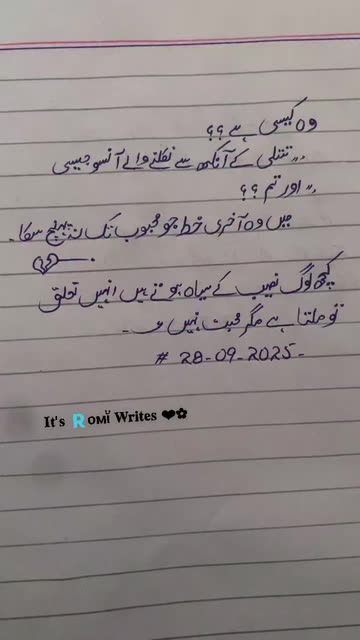 وہ کیسی ہے ؟؟
،، تتلی کے آنکھ سے نکلنے والے آنسو جیسی
،، اور تم ؟؟
میں وہ آخری خط جو محبوب تک نہ پہنچ سکا۔
کچھ لوگ نصیب کے سیاہ ہوتے ہیں انہیں تعلق
تو ملتا ہے مگر محبت نہیں
# 28-09-2025-
It's Romï Writes ❤✿